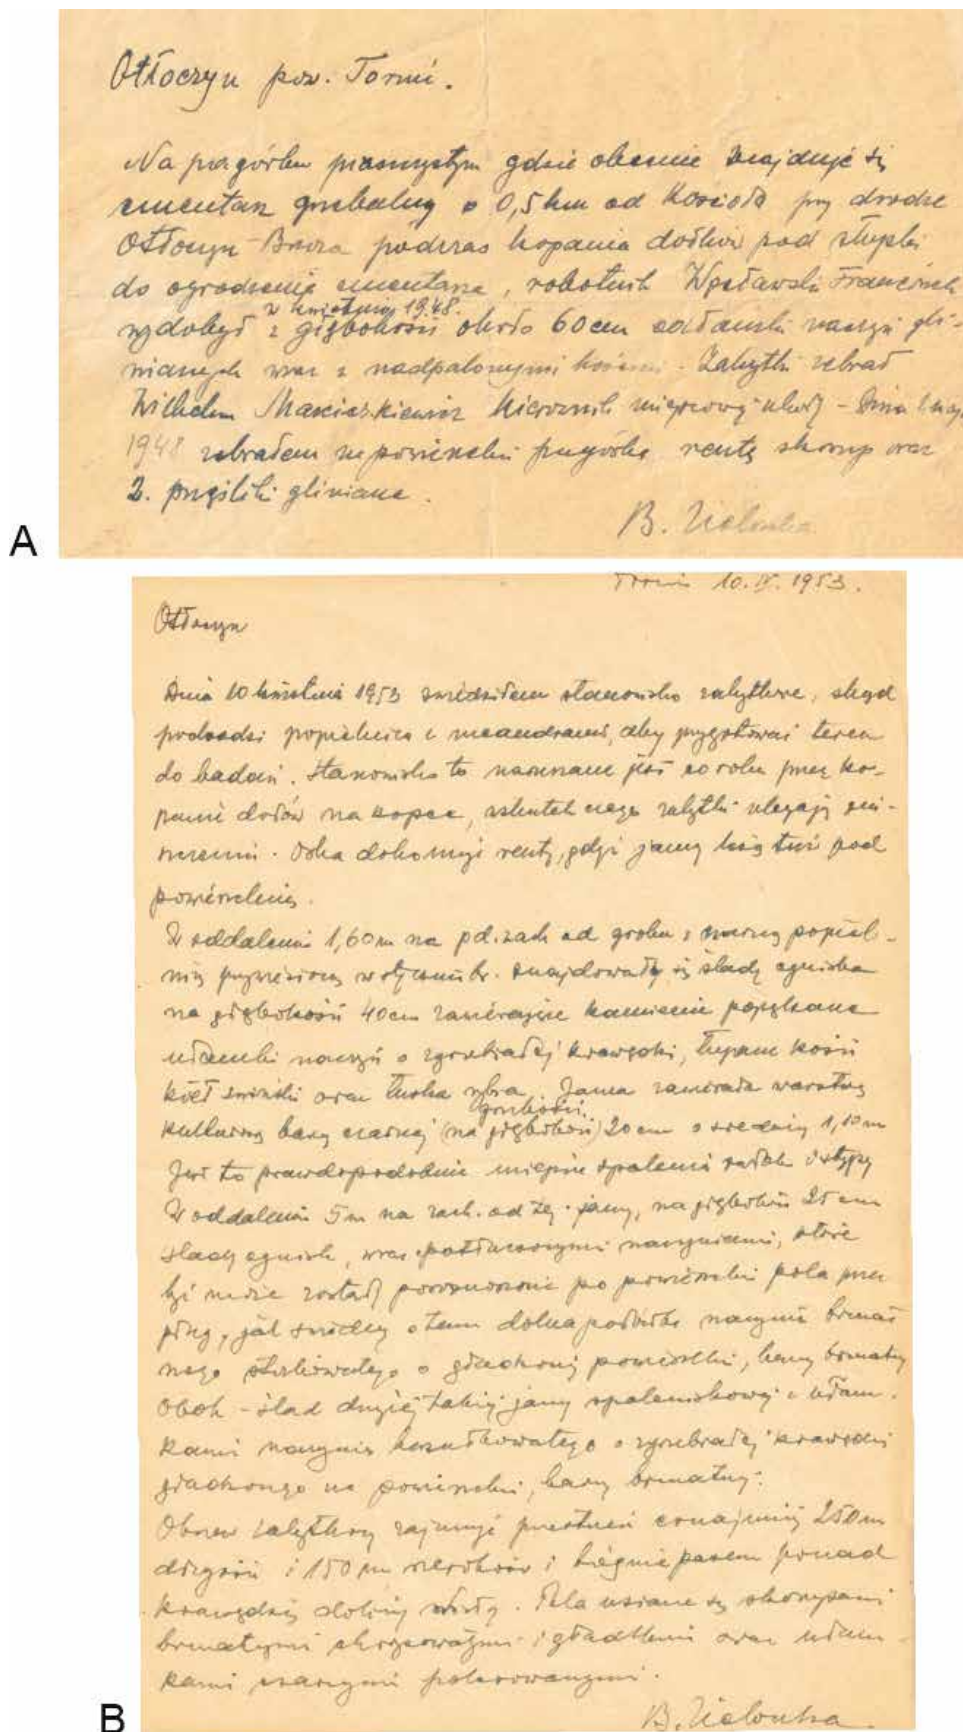 Otłoczyn pow. Toruń.
Na pagórku piaszczystym gdzie obecnie znajduje się
cmentarz grzebalny o 0,5 km od kościoła przy drodze
Otłoczyn - Brzoza podczas kopania dołków pod słupki
do ogrodzenia cmentarza, robotnik Węsławski Franciszek
w kwietniu 1948.
wydobył z głębokości około 60 cm ułamki naczyń gli-
nianych wraz z nadpalonymi kośćmi. Zabytki zebrał
Wilhelm Marciszkiewicz kierownik miejscowej szkoły - Dnia
1948 zebrałem na powierzchni pagórka resztę skorup oraz
2. przęśliki gliniane.
B. Zielonka
A
Toruń 10.IV.1953.
Otłoczyn
Dnia 10 kwietnia 1953 zwiedziłem stanowisko zabytkowe, skąd
pochodzi popielnica z meandrami, aby przygotować teren
do badań. Stanowisko to naruszane jest co roku przez ko-
panie dołów na kopce, wskutek czego zabytki ulegają zni-
szczeniu. Orka dokonuje reszty, gdyż jamy leżą tuż pod
powierzchnią.
W oddaleniu 1,60 m na pd. zach od grobu z czarną popiel-
nicą przyniesioną w styczniu br. znajdowały się ślady ogniska
na głębokości 40 cm zawierające kamienie popękane
ułamki naczyń o zgrubiałej krawędzi, łupane kości
kieł świński oraz łuska rybia. Jama zawierała warstwę
grubości
kulturową barwy czarnej (na głębokości) 20 cm o średnicy 1,10 m
Jest to prawdopodobnie miejsce spalenia zwłok i stypy
W oddaleniu 5 m na zach. od tej jamy, na głębokości 25 cm
ślady ognisk, wraz z potłuczonymi naczyniami, które
być może zostały porozrzucane po powierzchni pola przez
pług, jak świadczy o tem dolna połówka naczynia brunat
nego o gładkiej powierzchni, barwy brunatnej
Obok - ślad drugiej takiej jamy spaleniskowej z ułam-
kami naczynia o zgrubiałej krawędzi
gładkiego na powierzchni, barwy brunatnej.
Obszar zabytkowy zajmuje przestrzeń conajmniej 250 m
długości i 150 m szerokości i biegnie pasem ponad
krawędzią doliny Wisły. Pola usiane są skorupami
brunatnymi i gładkimi oraz ułam-
kami czarnymi polerowanymi.
B. Zielonka.
B